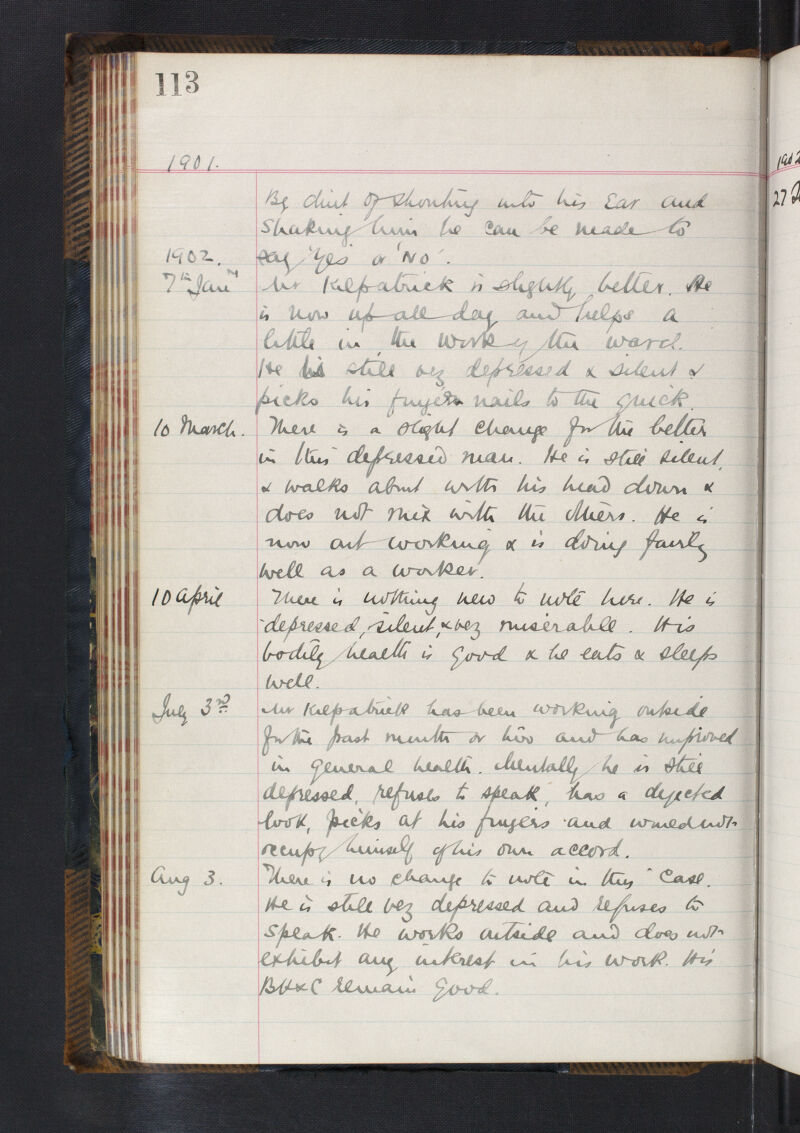 113
1901.
By dint of shouting into his Ear and
shaking him he can be made to
1902. say 'Yes' or 'No'.
7th Jany Mr Kilpatrick is slightly better. He
is now up all day and helps a
little in the work of the ward.
He is still very depressed & silent &
picks his finger nails to the quick.
10 March. There is a slight change for the better
in this depressed man. He is still silent,
& walks about with his head down &
does not mix with the others. He is
now out working & is doing fairly
well as a worker.
10 April There is nothing new to note here. He is
depressed, silent, & very miserable. His
bodily health is good & he eats & sleeps
well.
July 3rd Mr Kilpatrick has been working outside
for the past month or two and has improved
in general health. Mentally he is still
depressed, refuses to speak, has a dejected
look, picks at his fingers and would not
occupy himself of his own accord.
Aug 3. There is no change to note in this Case.
He is still very depressed and refuses to
speak. He works outside and does not
exhibit any interest in his work. His
BH&C remain good.
1902
27